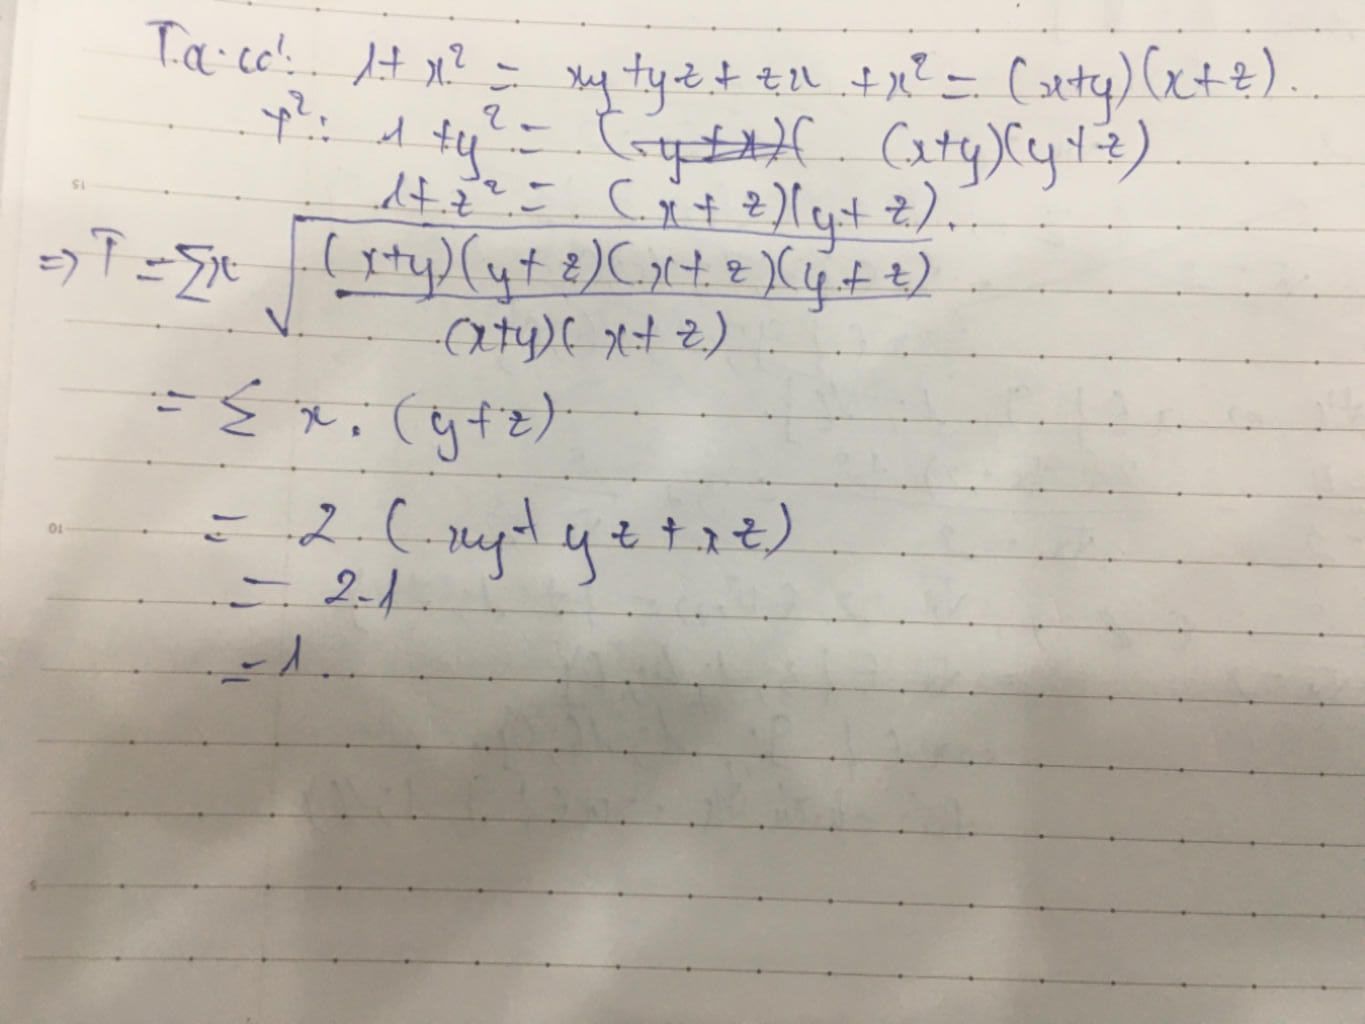 Ta có: 1+x² = xy+yz+zx+x² = (x+y)(x+z).
T²: 1+y² = (y+x)( (x+y)(y+z)
1+z² = (x+z)(y+z).
=> T = Σx √(x+y)(y+z)(x+z)(y+z)
(x+y)(x+z)
= Σ x.(y+z)
= 2(xy+yz+xz)
= 2.1
= 1
15
10
5